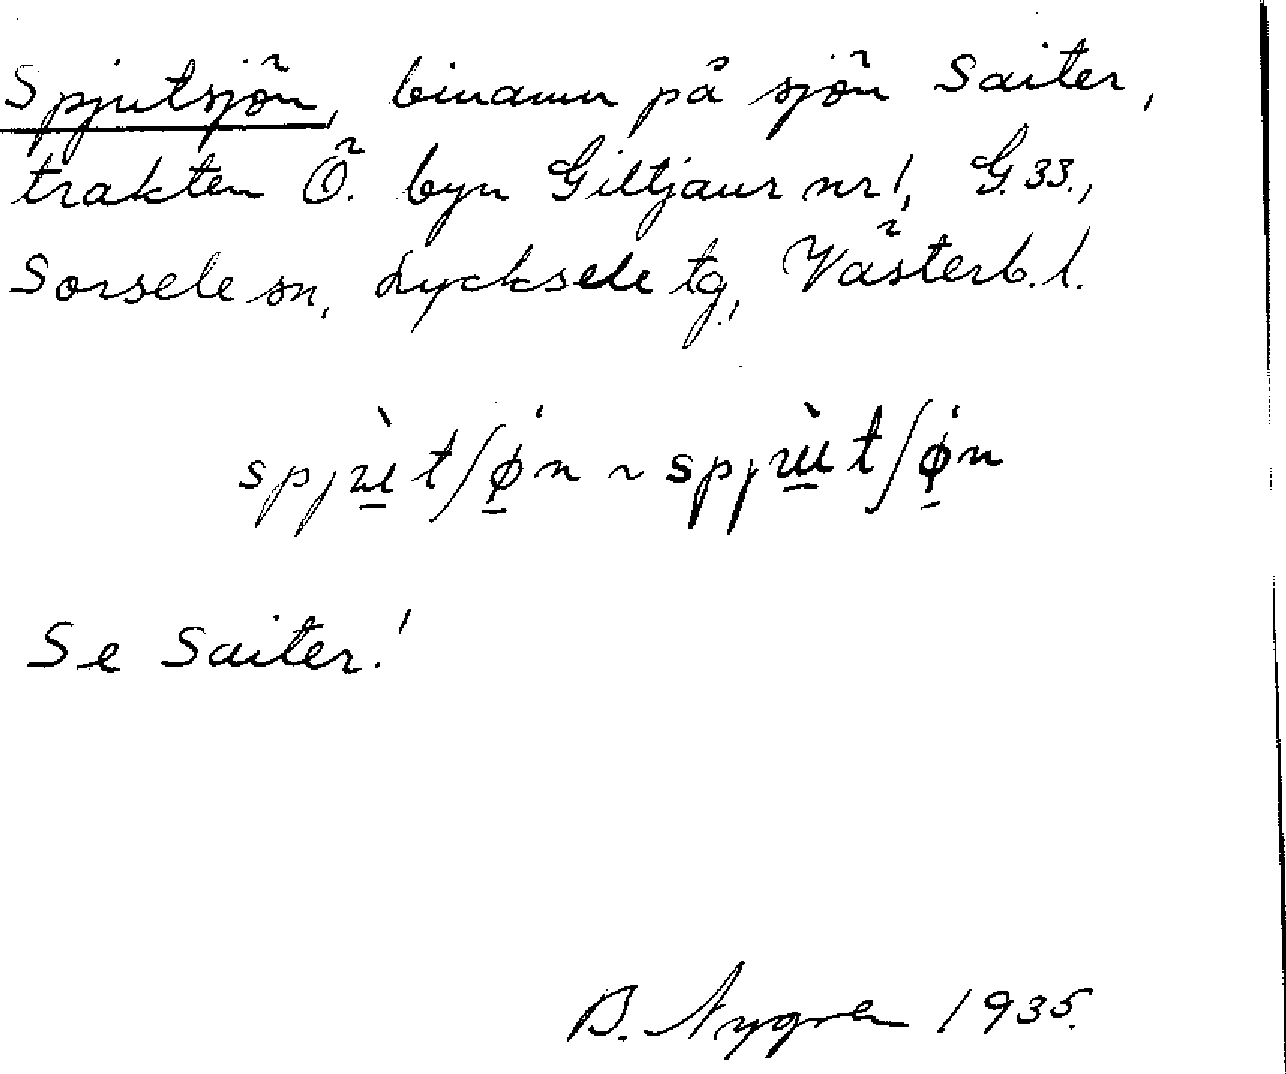 Spjutsjön, binamn på sjön Saiter,
trakten Ö. byn Giltjaur nr 1, G. 33.,
Sorsele sn, Lycksele tg, Västerb. l.
Se Saiter!
B. Nygren 1935.